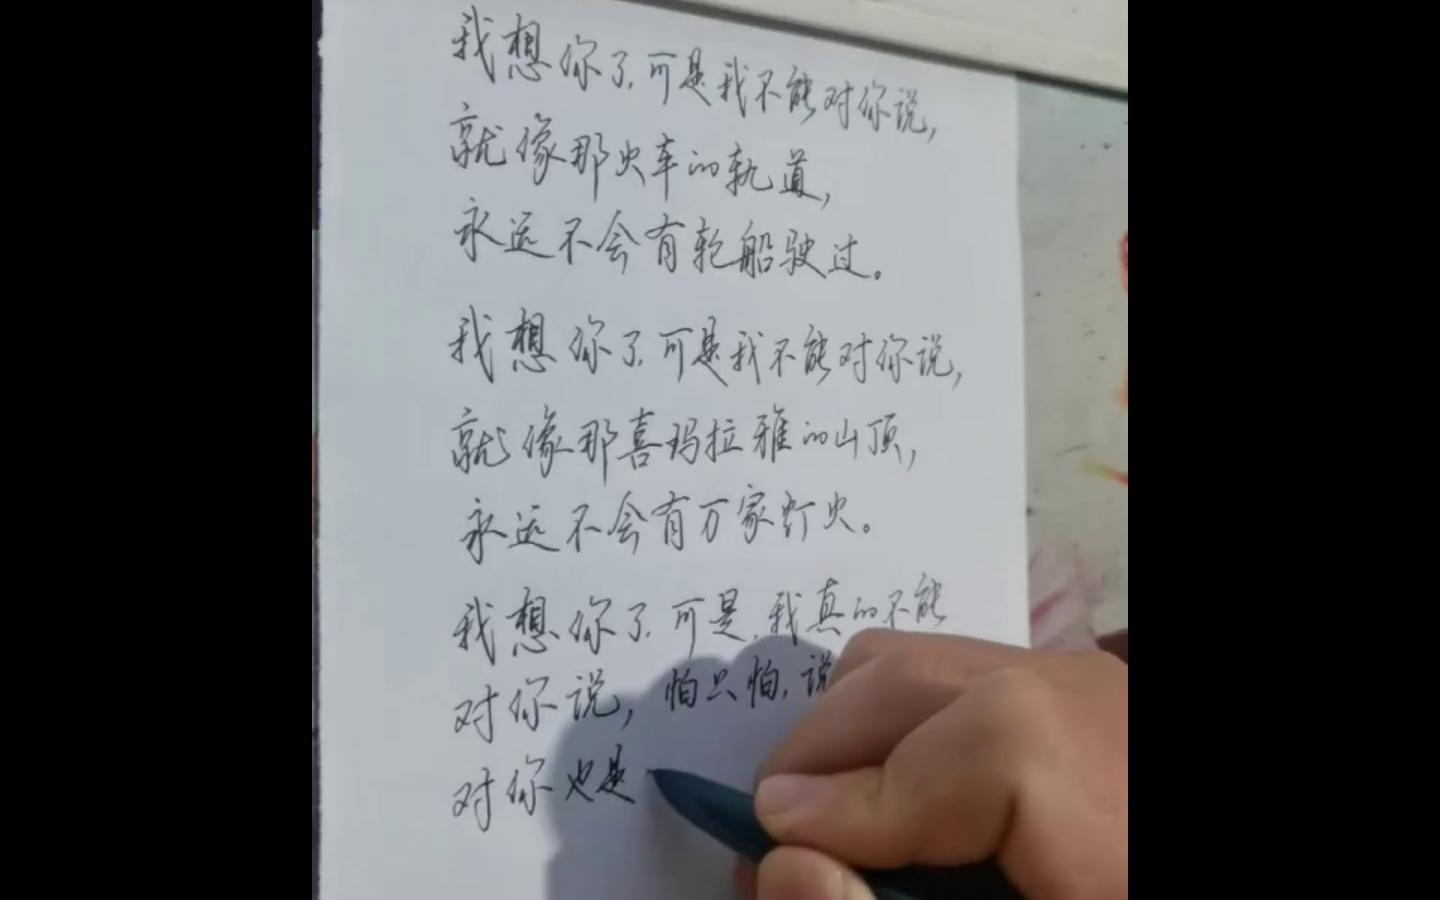 我想你了,可是我不能对你说,
就像那火车的轨道,
永远不会有轮船驶过。
我想你了,可是我不能对你说,
就像那喜玛拉雅的山顶,
永远不会有万家灯火。
我想你了,可是,我真的不能
对你说,怕只怕,说
对你也是